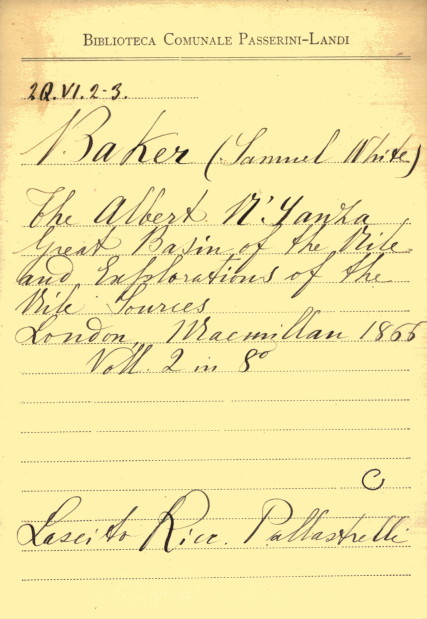 BIBLIOTECA COMUNALE PASSERINI-LANDI
2Q.VI.2-3.
Baker (Samuel White)
The Albert N'Yanza
Great Basin of the Nile
and Explorations of the
Nile Sources
London, Macmillan 1866
Voll. 2 in 8°
C
Lascito Ricc. Pallastrelli